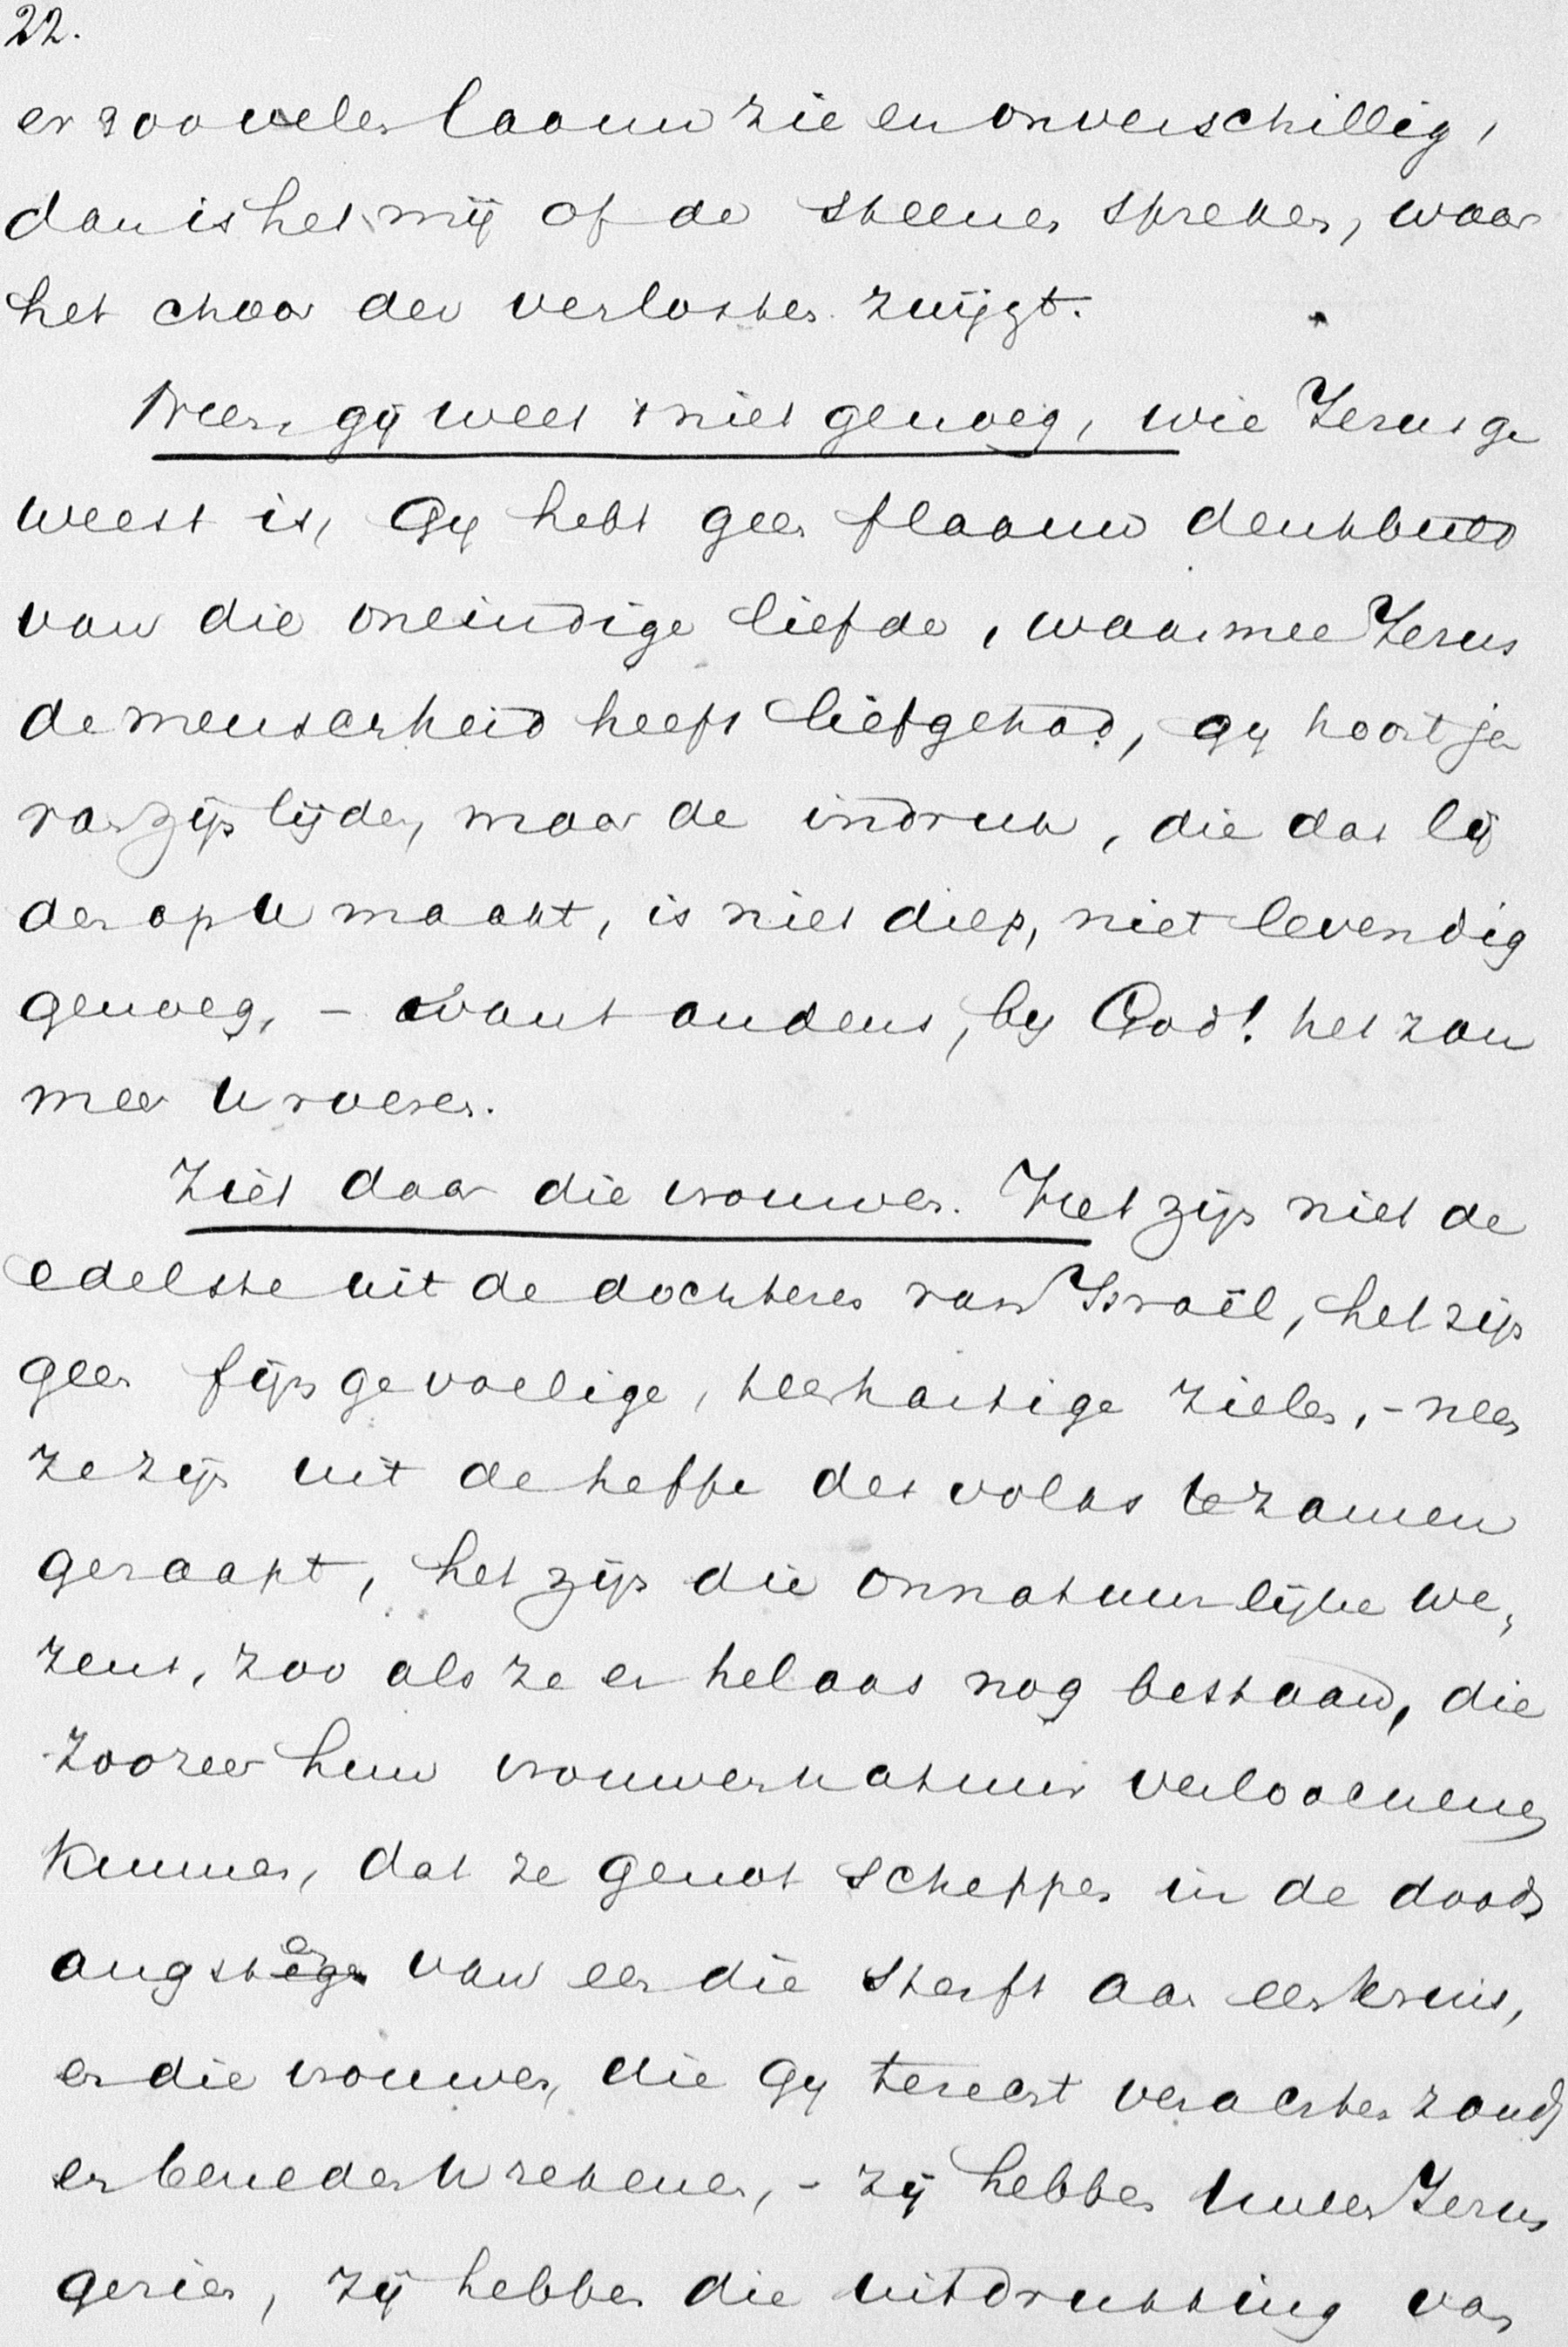 22.
en zoo velen laauw zie en onverschillig,
dan is het mij of de steenen spreken, waar
het choor der verlosten zwijgt.
Neen, gij weet 't niet genoeg, wie Jesus ge
weest is, Gij hebt geen flaauw denkbeeld
van die oneindige liefde, waarmee Jesus
de menscheid heeft liefgehad, gij hoort ja
van zijn lijden, maar de indruk, die dat lij
den op U maakt, is niet diep, niet levendig
genoeg, - want anders, bij God! het zou
meer U roeren.
Ziet daar die vrouwen. Het zijn niet de
edelste uit de dochteren van Israël, het zijn
geen fijn gevoelige, teerhartige zielen, - neen
ze zijn uit de heffe des volks tezamen
geraapt, het zijn die onnatuurlijke we,
zens, zoo als ze er helaas nog bestaan, die
zoozeer hun vrouwennatuur verloochenen
kunnen, dat ze genot scheppen in de doods
angsten van een die sterft aan een kruis,
en die vrouwen, die gij terecht verachten zoudt
en beneden U rekenen, - zij hebben Uwen Jesus
gezien, zij hebben die uitdrukking van